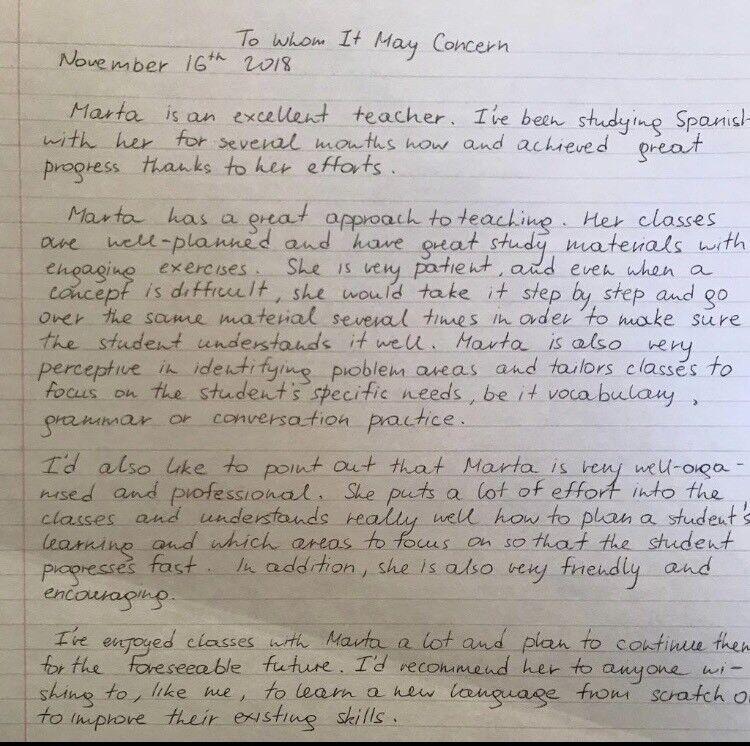 To Whom It May Concern
November 16th 2018
Marta is an excellent teacher. I've been studying Spanish
with her for several months now and achieved great
progress thanks to her efforts.
Marta has a great approach to teaching. Her classes
are well-planned and have great study materials with
engaging exercises. She is very patient, and even when a
concept is difficult, she would take it step by step and go
over the same material several times in order to make sure
the student understands it well. Marta is also very
perceptive in identifying problem areas and tailors classes to
focus on the student's specific needs, be it vocabulary,
grammar or conversation practice.
I'd also like to point out that Marta is very well-orga-
nised and professional. She puts a lot of effort into the
classes and understands really well how to plan a student's
learning and which areas to focus on so that the student
progresses fast. In addition, she is also very friendly and
encouraging.
I've enjoyed classes with Marta a lot and plan to continue them
for the foreseeable future. I'd recommend her to anyone wi-
shing to, like me, to learn a new language from scratch or
to improve their existing skills.